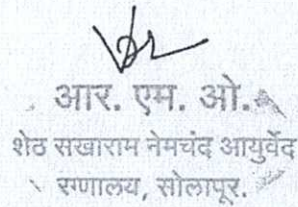 आर. एम. ओ.
शेठ सखाराम नेमचंद आयुर्वेद
रुग्णालय, सोलापूर.